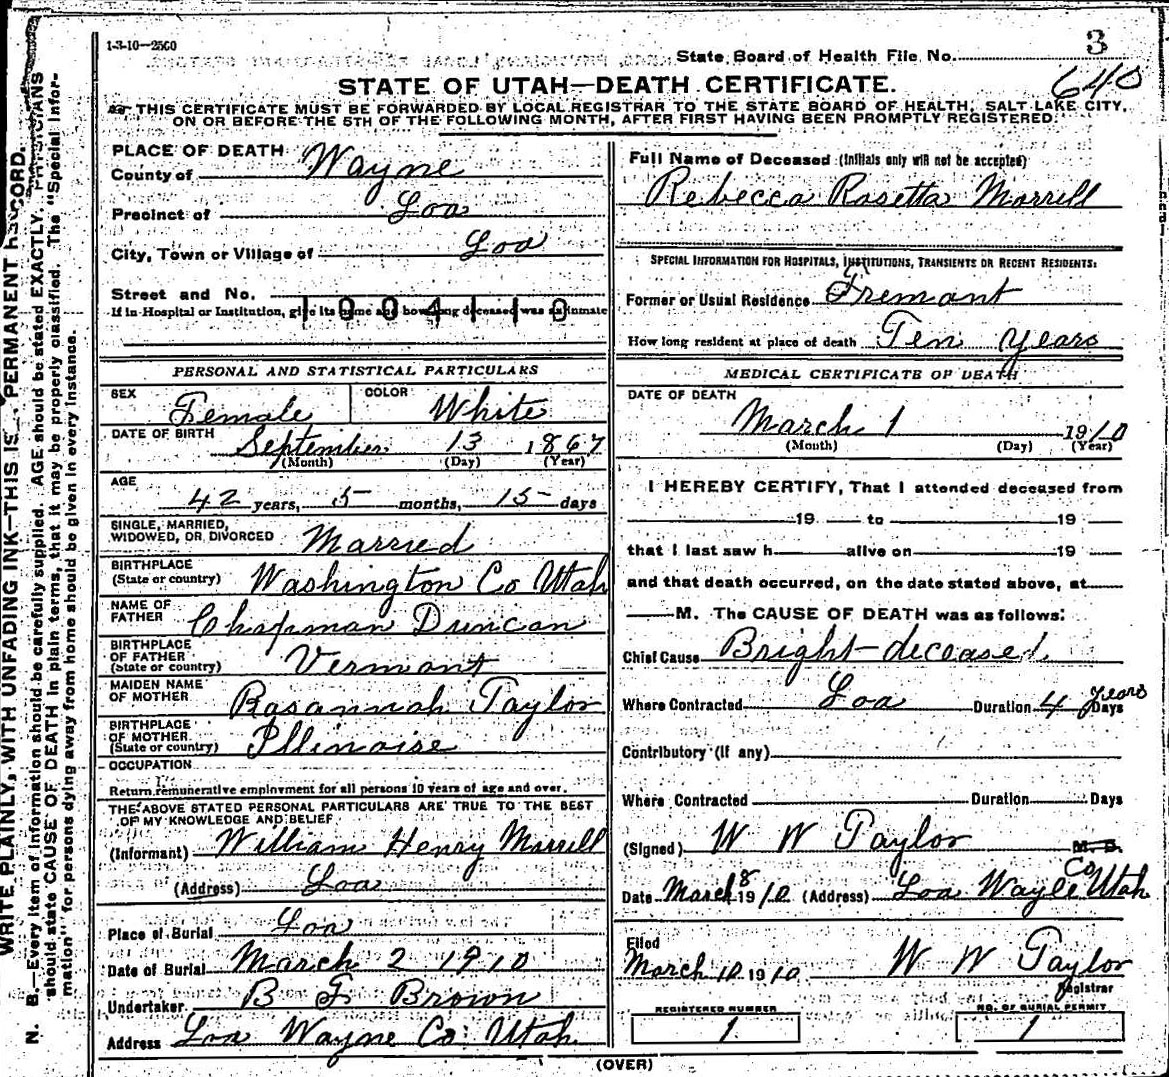 1-3-10—2500
State Board of Health File No. 3
640
STATE OF UTAH—DEATH CERTIFICATE.
THIS CERTIFICATE MUST BE FORWARDED BY LOCAL REGISTRAR TO THE STATE BOARD OF HEALTH, SALT LAKE CITY,
ON OR BEFORE THE 5TH OF THE FOLLOWING MONTH, AFTER FIRST HAVING BEEN PROMPTLY REGISTERED.
PLACE OF DEATH
County of Wayne
Precinct of Loa
City, Town or Village of Loa
Street and No.
If in Hospital or Institution, give its name and how long deceased was an inmate
1004110
PERSONAL AND STATISTICAL PARTICULARS
SEX Female COLOR White
DATE OF BIRTH September 13 1867
(Month) (Day) (Year)
AGE
42 years, 5 months, 15 days
SINGLE, MARRIED,
WIDOWED, OR DIVORCED Married
BIRTHPLACE
(State or country) Washington Co Utah
NAME OF
FATHER Chapman Duncan
BIRTHPLACE
OF FATHER
(State or country) Vermont
MAIDEN NAME
OF MOTHER Rosannah Taylor
BIRTHPLACE
OF MOTHER
(State or country) Illinoise
OCCUPATION
Return remunerative employment for all persons 10 years of age and over.
THE ABOVE STATED PERSONAL PARTICULARS ARE TRUE TO THE BEST
OF MY KNOWLEDGE AND BELIEF
(Informant) William Henry Morrell
(Address) Loa
Place of Burial Loa
Date of Burial March 2 1910
Undertaker B F Brown
Address Loa Wayne Co: Utah
Full Name of Deceased (Initials only will not be accepted)
Rebecca Rosetta Morrell
SPECIAL INFORMATION FOR HOSPITALS, INSTITUTIONS, TRANSIENTS OR RECENT RESIDENTS:
Former or Usual Residence Fremont
How long resident at place of death Ten years
MEDICAL CERTIFICATE OF DEATH
DATE OF DEATH
March 1 1910
(Month) (Day) (Year)
I HEREBY CERTIFY, That I attended deceased from
19 to 19
that I last saw h alive on 19
and that death occurred, on the date stated above, at
M. The CAUSE OF DEATH was as follows:
Chief Cause Bright-deceased
Where Contracted Loa Duration 4 years Days
Contributory (if any)
Where Contracted Duration Days
(Signed) W W Taylor M. D.
Date March 8 1910 (Address) Loa Wayle Co Utah
Filed
March 10 1910 W W Taylor
Registrar
REGISTERED NUMBER
1
NO. OF BURIAL PERMIT
1
(OVER)
WRITE PLAINLY, WITH UNFADING INK—THIS IS PERMANENT RECORD.
N. B.—Every item of information should be carefully supplied. AGE should be stated EXACTLY. PHYSICIANS
should state CAUSE OF DEATH in plain terms, that it may be properly classified. The "Special Infor-
mation" for persons dying away from home should be given in every instance.